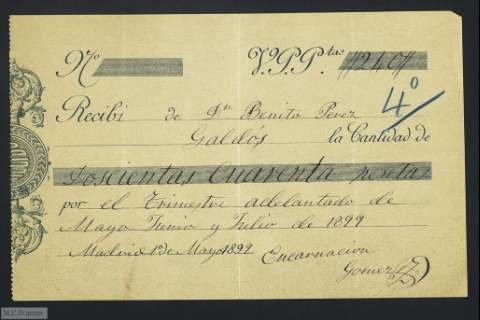 Nº V.P.P.tas //240//
4º
Recibí de Dn Benito Perez
Galdós la Cantidad de
Doscientas Cuarenta pesetas
por el Trimestre adelantado de
Mayo Junio y Julio de 1899
Madrid 1º de Mayo 1899 Encarnacion
Gomez